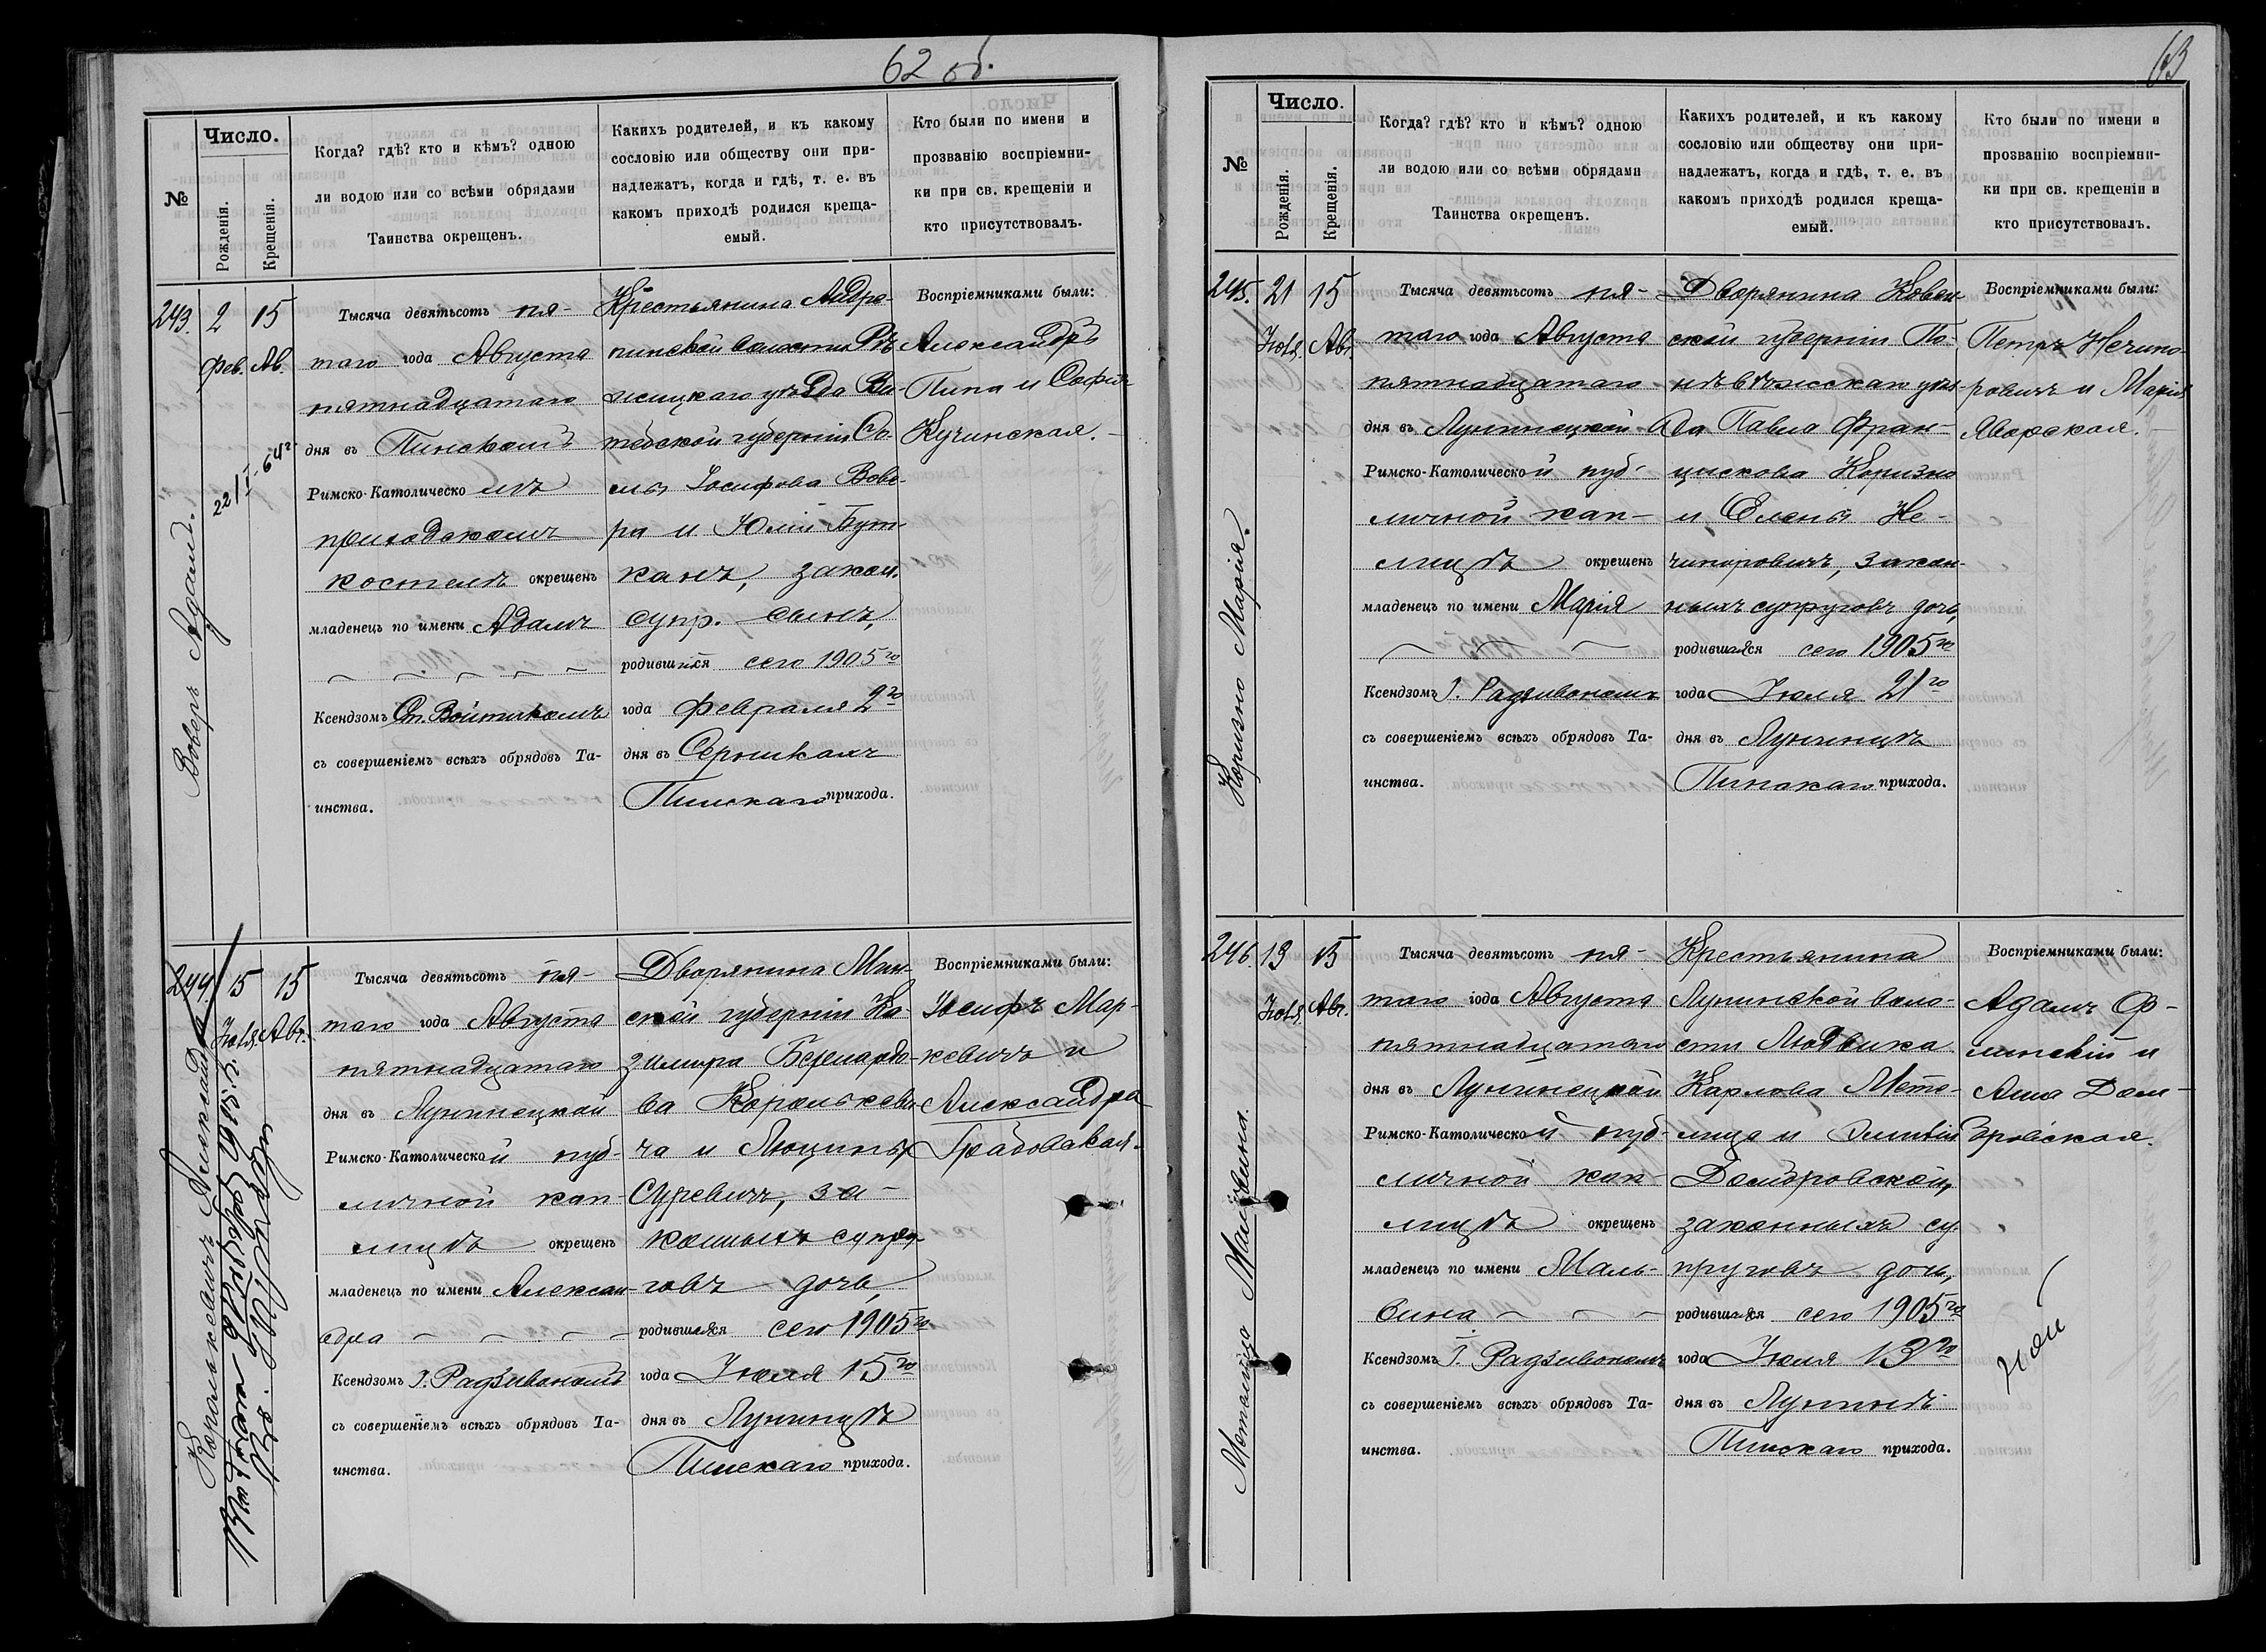 62 об.
Число.
№
Рожденія.
Крещенія.
Когда? гдѣ? кто и кѣмъ? одною
ли водою или со всѣми обрядами
Таинства окрещенъ.
Какихъ родителей, и къ какому
сословію или обществу они при-
надлежатъ, когда и гдѣ, т. е. въ
какомъ приходѣ родился креща-
емый.
Кто были по имени и
прозванію воспріемни-
ки при св. крещеніи и
кто присутствовалъ.
243.
2
Фев.
15
Ав.
Воверъ Адамъ.
Тысяча девятьсотъ пя-
таго года Августа
пятнадцатаго
дня въ Пинскомъ
Римско-Католическомъ
приходскомъ
костелѣ окрещенъ
младенецъ по имени Адамъ
Ксендзомъ Ст. Войтикомъ
съ совершеніемъ всѣхъ обрядовъ Та-
инства.
Крестьянина Андре-
пинской волости Рѣ-
жицкаго уѣзда Ви-
тебской губерніи
Іосифова Вове-
ра и Юліи Бут-
канъ, закон.
супр. сынъ,
родившійся сего 1905 го
года Февраля 2 го
дня въ Серникахъ
Пинскаго прихода.
Воспріемниками были:
Александръ
Пипа и Софія
Кучинская.
244.
15
Іюля.
15
Авг.
Корольkевичъ Александра
Тысяча девятьсотъ пя-
таго года Августа
пятнадцатаго
дня въ Лунинецкой
Римско-Католической пуб-
личной кап-
лицѣ окрещенъ
младенецъ по имени Алексан-
дра
Ксендзомъ І. Радзивономъ
съ совершеніемъ всѣхъ обрядовъ Та-
инства.
Дворянина Мин-
ской губерніи Ка-
зимира Бернардо-
ва Королькеви-
ча и Люцины
Суревичъ, за-
конныхъ супру-
говъ дочь,
родившаяся сего 1905 го
года Іюля 15 го
дня въ Лунинцѣ
Пинскаго прихода.
Воспріемниками были:
Іосифъ Мар-
кевичъ и
Александра
Грабовская.
63
Число.
№
Рожденія.
Крещенія.
Когда? гдѣ? кто и кѣмъ? одною
ли водою или со всѣми обрядами
Таинства окрещенъ.
Какихъ родителей, и къ какому
сословію или обществу они при-
надлежатъ, когда и гдѣ, т. е. въ
какомъ приходѣ родился креща-
емый.
Кто были по имени и
прозванію воспріемни-
ки при св. крещеніи и
кто присутствовалъ.
245.
21
Іюля.
15
Авг.
Коризно Марія.
Тысяча девятьсотъ пя-
таго года Августа
пятнадцатаго
дня въ Лунинецкой
Римско-Католической пуб-
личной кап-
лицѣ окрещенъ
младенецъ по имени Марія
Ксендзомъ І. Радзивономъ
съ совершеніемъ всѣхъ обрядовъ Та-
инства.
Дворянина Ковен-
ской губерніи По-
нѣвѣжскаго уѣз-
да Павла Фран-
цискова Коризно
и Елены Не-
чипоровичъ, закон-
ныхъ супруговъ дочь,
родившаяся сего 1905 го
года Іюля 21 го
дня въ Лунинцѣ
Пинскаго прихода.
Воспріемниками были:
Петръ Нечипо-
ровичъ и Марія
Яворская.
246.
13
Іюля.
15
Авг.
Метлица Мальвина.
Тысяча девятьсотъ пя-
таго года Августа
пятнадцатаго
дня въ Лунинецкой
Римско-Католической пуб-
личной кап-
лицѣ окрещенъ
младенецъ по имени Маль-
вина
Ксендзомъ І. Радзивономъ
съ совершеніемъ всѣхъ обрядовъ Та-
инства.
Крестьянина
Лунинской воло-
сти Людвика
Карлова Мете-
лица и Эмиліи
Домбровской,
законныхъ су-
пруговъ дочь,
родившаяся сего 1905 го
года Іюля 13 го
дня въ Лунинѣ
Пинскаго прихода.
Воспріемниками были:
Адамъ
и
Анна Дом-
бровская.